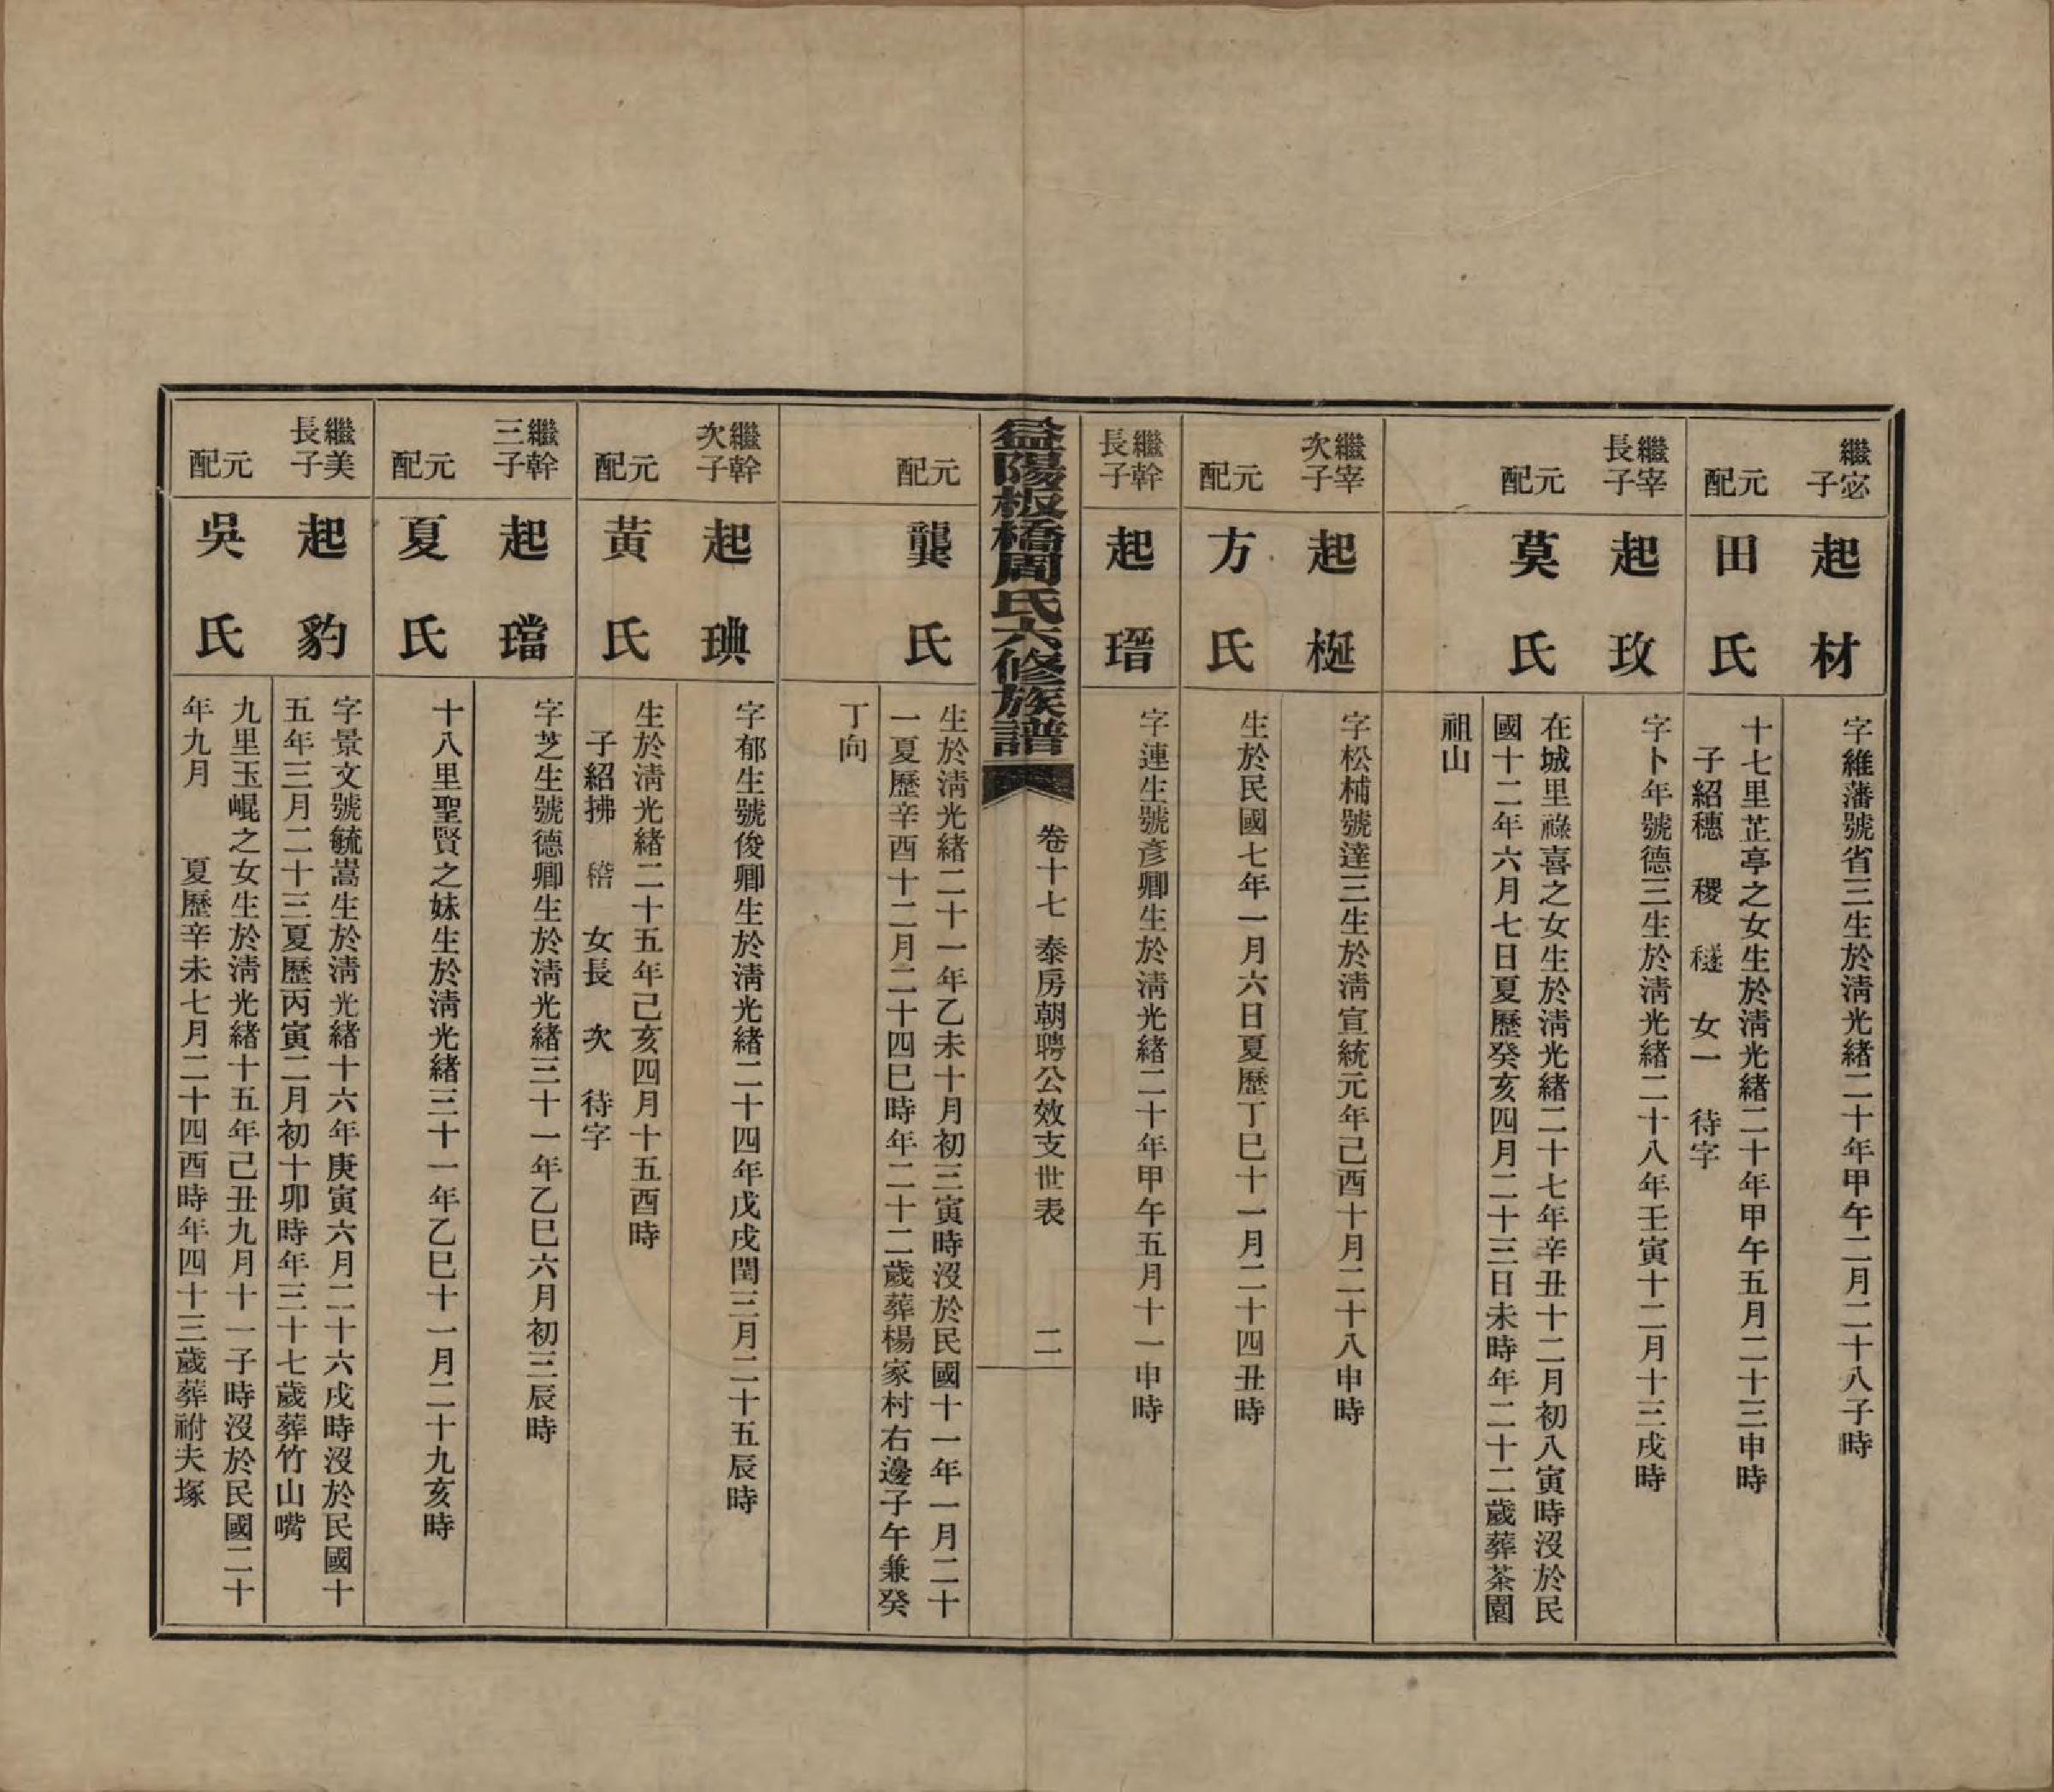 繼宓子
起材
字維藩號省三生於淸光緒二十年甲午二月二十八子時
元配
田氏
十七里芷亭之女生於淸光緒二十年甲午五月二十三申時
子紹穗 稷 穟 女一 待字
繼宰長子
起玫
字卜年號德三生於淸光緒二十八年壬寅十二月十三戌時
元配
莫氏
在城里祿喜之女生於淸光緒二十七年辛丑十二月初八寅時沒於民
國十二年六月七日夏歷癸亥四月二十三日未時年二十二歲葬茶園
祖山
繼宰次子
起梴
字松楠號達三生於淸宣統元年己酉十月二十八申時
元配
方氏
生於民國七年一月六日夏歷丁巳十一月二十四丑時
繼幹長子
起瑨
字連生號彥卿生於淸光緒二十年甲午五月十一申時
益陽板橋周氏六修族譜
卷十七 泰房朝聘公效支世表
二
元配
龔氏
生於淸光緒二十一年乙未十月初三寅時沒於民國十一年一月二十
一夏歷辛酉十二月二十四巳時年二十二歲葬楊家村右邊子午兼癸
丁向
繼幹次子
起琠
字郁生號俊卿生於淸光緒二十四年戊戌閏三月二十五辰時
元配
黃氏
生於淸光緒二十五年己亥四月十五酉時
子紹拂 女長 次 待字
繼幹三子
起璫
字芝生號德卿生於淸光緒三十一年乙巳六月初三辰時
元配
夏氏
十八里聖賢之妹生於淸光緒三十一年乙巳十一月二十九亥時
繼美長子
起豹
字景文號毓嵩生於淸光緒十六年庚寅六月二十六戌時沒於民國十
五年三月二十三夏歷丙寅二月初十卯時年三十七歲葬竹山嘴
元配
吳氏
九里玉崐之女生於淸光緒十五年己丑九月十一子時沒於民國二十
年九月 夏歷辛未七月二十四酉時年四十三歲葬祔夫塚